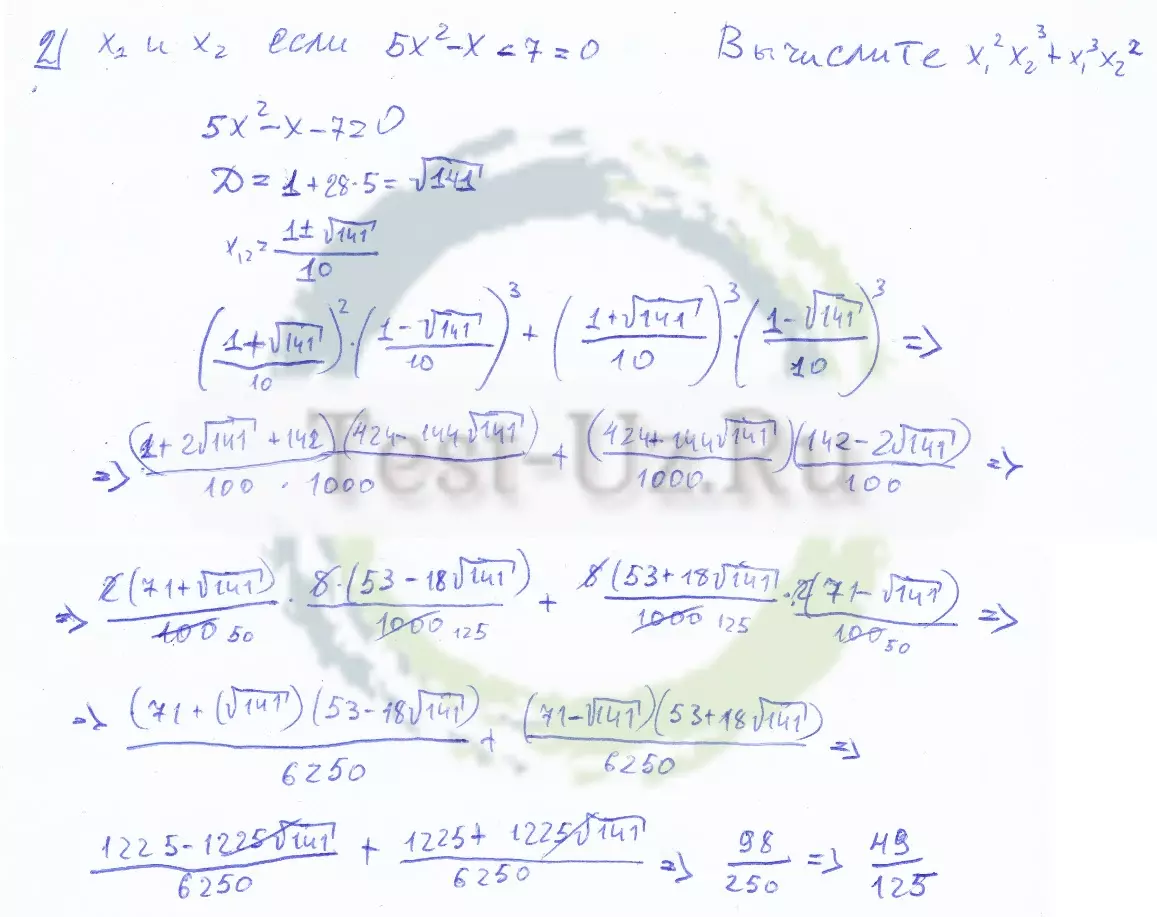 2) x₁ и x₂ если 5x²-x-7=0 Вычислите x₁²x₂³+x₁³x₂²
5x²-x-7=0
D=1+28·5=√141
x₁,₂=(1±√141)/10
((1+√141)/10)²·((1-√141)/10)³+((1+√141)/10)³·((1-√141)/10)³=>
=>(1+2√141+142)(424-144√141)/(100·1000)+(424+144√141)/1000(142-2√141)/100=>
Test-Uz.Ru
=>2(71+√141)/100 50·8·(53-18√141)/1000 125+8(53+18√141)/1000 125·2(71-√141)/100 50=>
=>(71+(√141)(53-18√141)/6250+(71-√141)(53+18√141)/6250=>
(1225-1225√141)/6250+(1225+1225√141)/6250=>98/250=>49/125